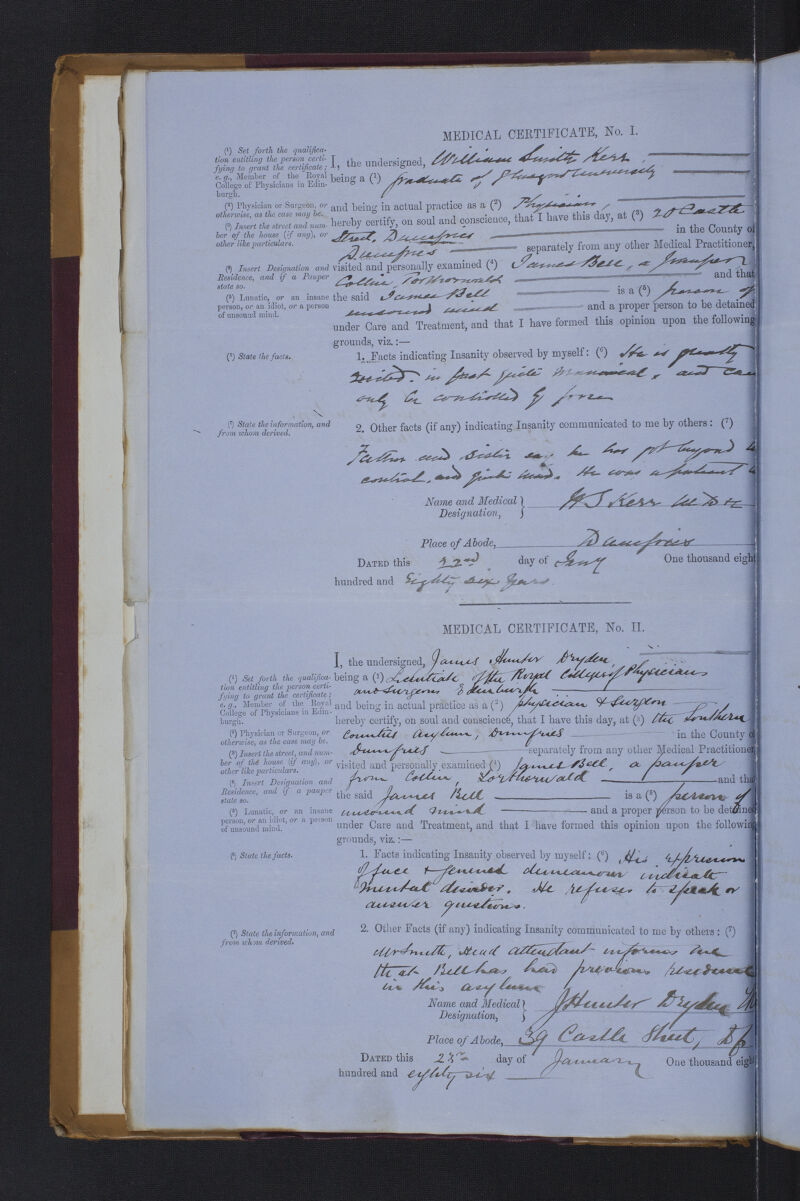 MEDICAL CERTIFICATE, No. I.
(¹) Set forth the qualifica-
tion entitling the person certi-
fying to grant the certificate;
e.g., Member of the Royal
College of Physicians in Edin-
burgh.
(²) Physician or Surgeon, or
otherwise, as the case may be.
(³) Insert the street and num-
ber of the house (if any), or
other like particulars.
(⁴) Insert Designation and
Residence, and if a Pauper
state so.
(⁵) Lunatic, or an insane
person, or an idiot, or a person
of unsound mind.
(⁶) State the facts.
(⁷) State the information, and
from whom derived.
I, the undersigned, William Smith Kerr
being a (¹) graduate of Glasgow University
and being in actual practice as a (²) Physician,
hereby certify, on soul and conscience, that I have this day, at (³) 20 Castle
Street, Dumfries in the County of
Dumfries separately from any other Medical Practitioner,
visited and personally examined (⁴) James Bell, a pauper
Collin, Torthorwald and that
the said James Bell is a (⁵) person of
unsound mind and a proper person to be detained
under Care and Treatment, and that I have formed this opinion upon the following
grounds, viz.:—
1. Facts indicating Insanity observed by myself: (⁶) He is greatly
excited. in fact quite maniacal, and can
only be controlled by force
2. Other facts (if any) indicating Insanity communicated to me by others: (⁷)
Father and Sister say he has got beyond
control, and quite mad. He was a patient
Name and Medical Designation, W S Kerr M.B.
Place of Abode, Dumfries
DATED this 22nd day of Jany One thousand eight
hundred and Eighty six years.
MEDICAL CERTIFICATE, No. II.
(¹) Set forth the qualifica-
tion entitling the person certi-
fying to grant the certificate;
e.g., Member of the Royal
College of Physicians in Edin-
burgh.
(²) Physician or Surgeon, or
otherwise, as the case may be.
(³) Insert the street, and num-
ber of the house (if any), or
other like particulars.
(⁴) Insert Designation and
Residence, and if a pauper
state so.
(⁵) Lunatic, or an insane
person, or an idiot, or a person
of unsound mind.
(⁶) State the facts.
(⁷) State the information, and
from whom derived.
I, the undersigned, James Hunter Dryden,
being a (¹) Licentiate of the Royal Colleges of Physicians
and Surgeons Edinburgh
and being in actual practice as a (²) physician & Surgeon
hereby certify, on soul and conscience, that I have this day, at (³) the Southern
Counties Asylum, Dumfries in the County of
Dumfries separately from any other Medical Practitioner
visited and personally examined (⁴) James Bell, a pauper
from Collin, Lortherwald and that
the said James Bell is a (⁵) person of
unsound mind and a proper person to be detained
under Care and Treatment, and that I have formed this opinion upon the following
grounds, viz.:—
1. Facts indicating Insanity observed by myself: (⁶) His expression
of face & general demeanour indicate
mental disorder. He refuses to speak or
answer questions.
2. Other Facts (if any) indicating Insanity communicated to me by others: (⁷)
Mr Smith, Head attendant informs me
that Bell has had previous residence
in this asylum
Name and Medical Designation, J Hunter Dryden
Place of Abode, 39 Castle Street, Dfs
DATED this 23rd day of January One thousand eight
hundred and eighty six